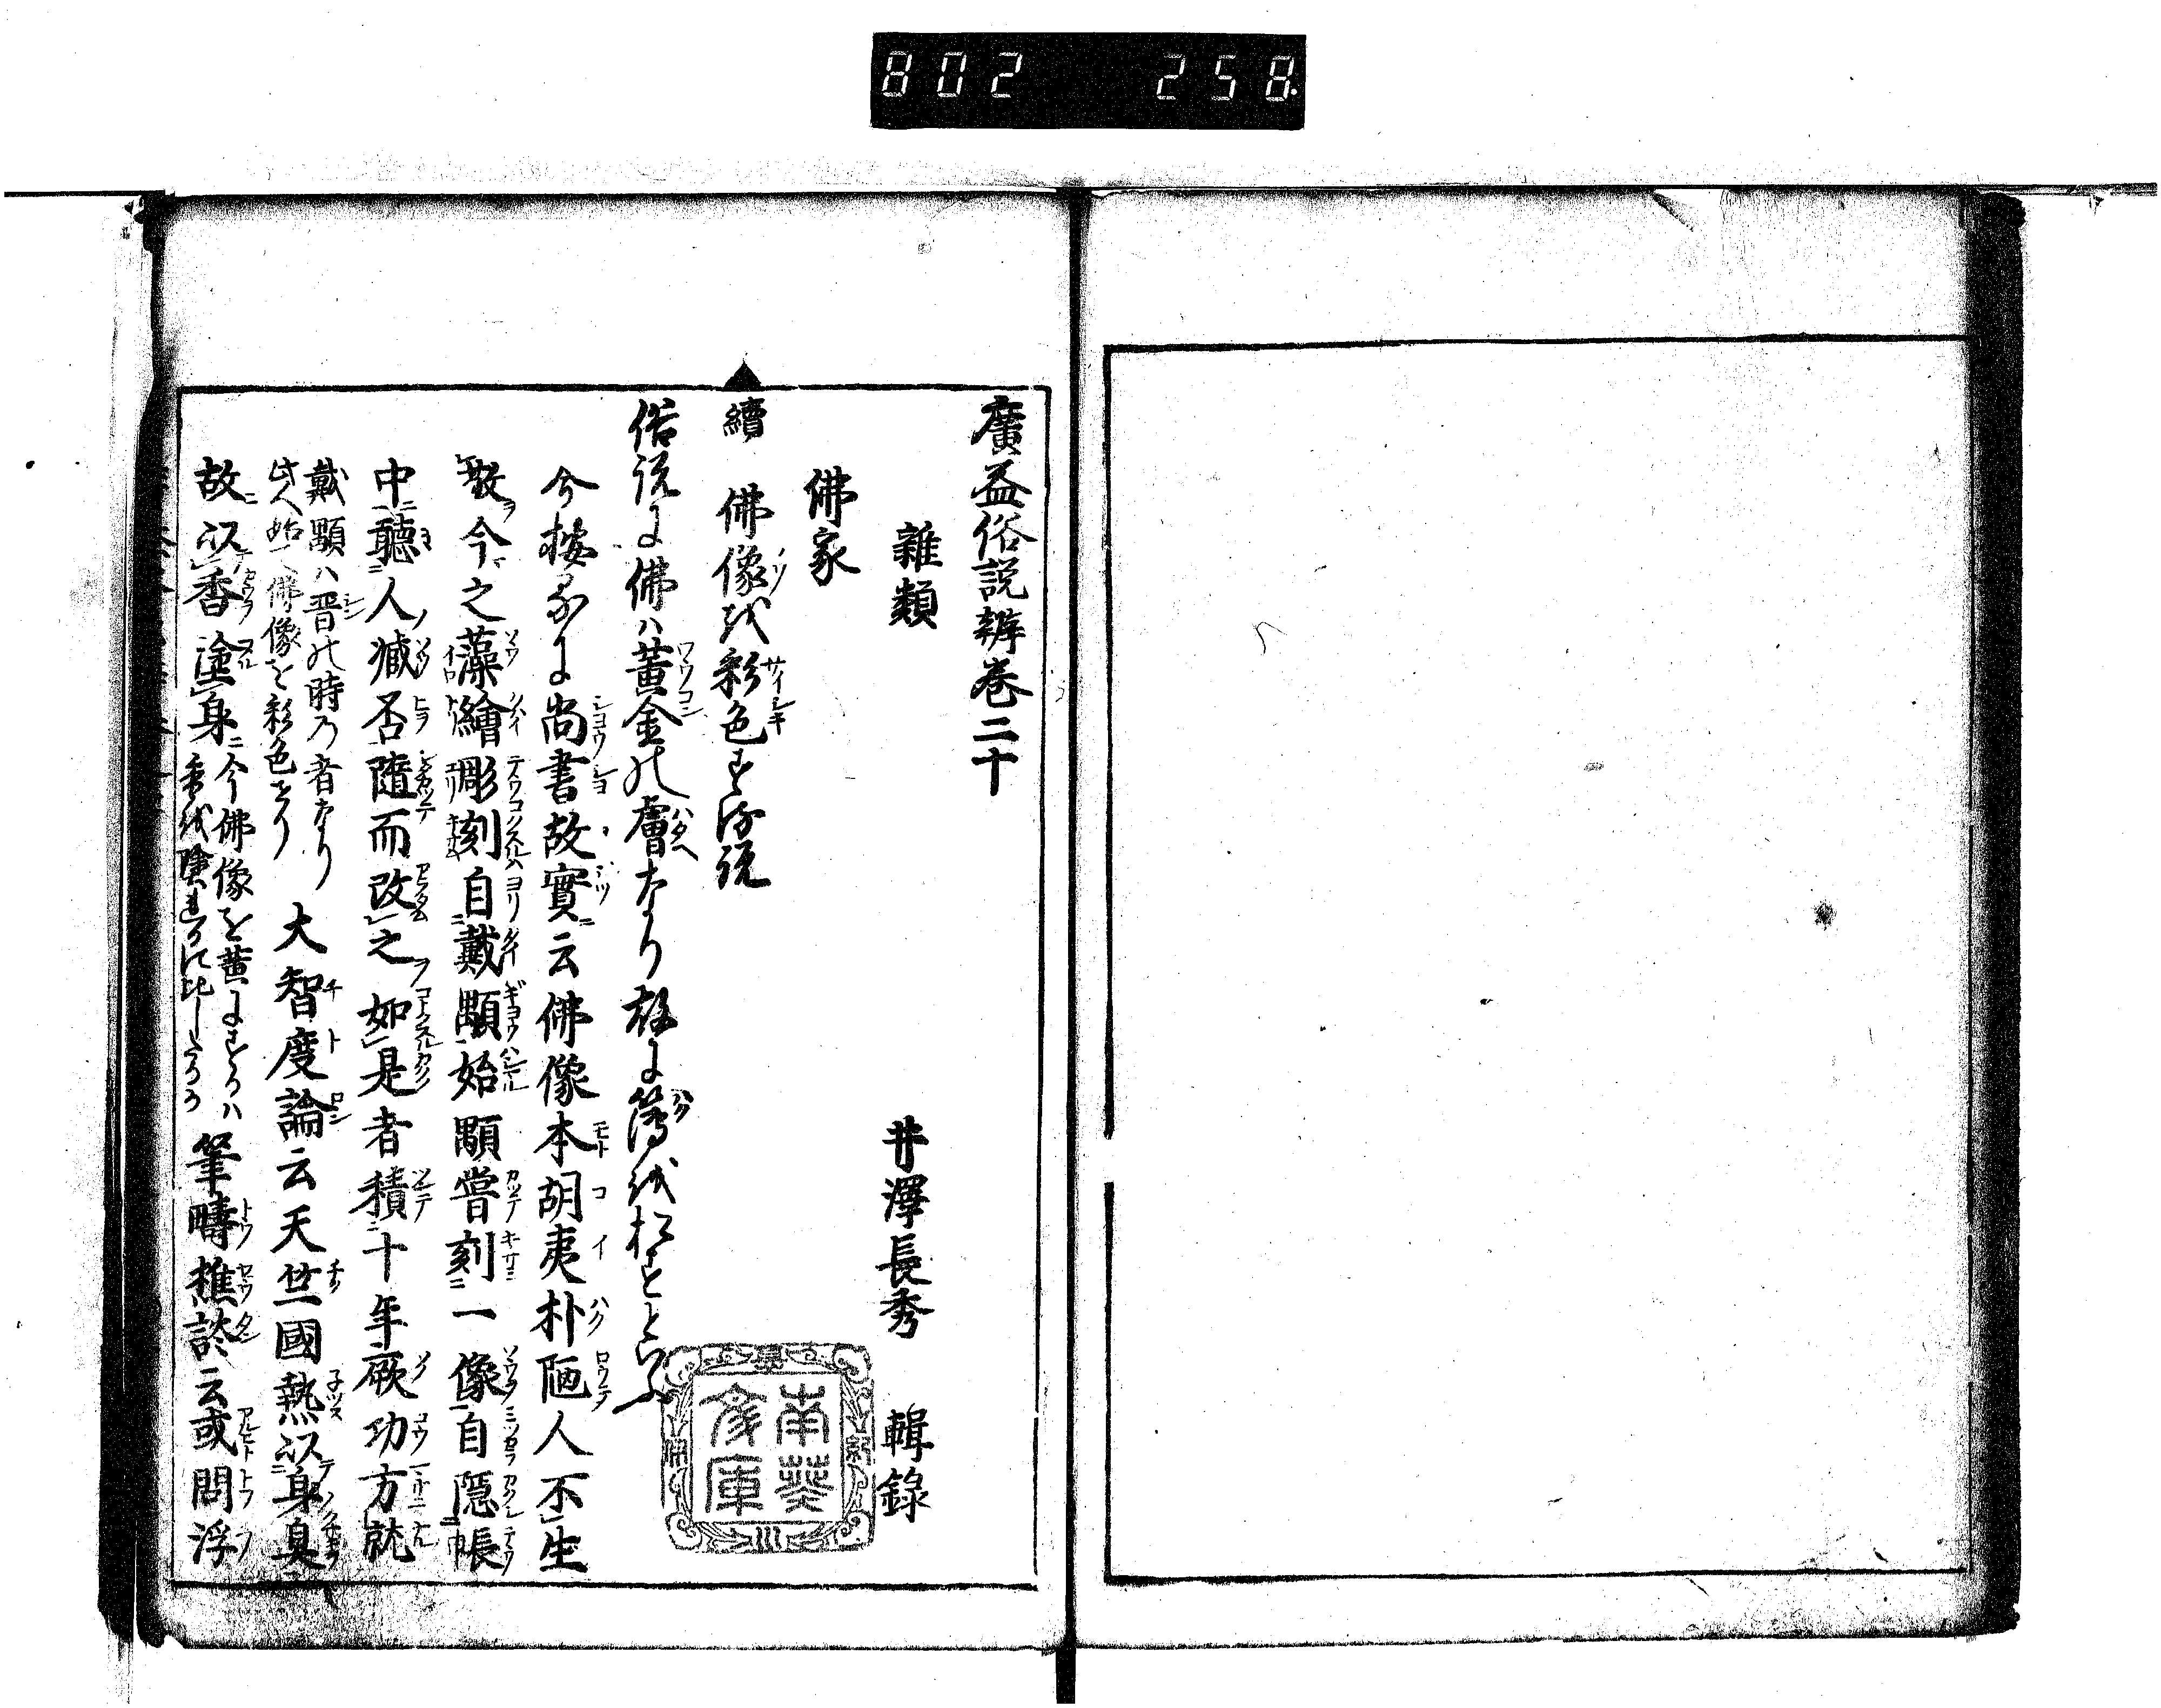 802 258
廣益俗説辨巻二十
雜類
井澤長秀 輯錄
佛家
續 佛像を彩色する説
俗説に佛ハ黄金の膚なり故に箔をおすといふ
今按るに尚書故實云佛像本胡夷朴陋人不生
敬今之藻繪彫刻自戴顒始顒嘗刻一像自隠帳
中聽人臧否隨而改之如是者積十年厥功方就
戴顒ハ晋の時の者なり
此人始て佛像を彩色せり
大智度論云天竺國熱以身臭
故以香塗身
今佛像を黄にするハ
香を塗るに比したるか
筆疇樵談云或問浮
南葵文庫